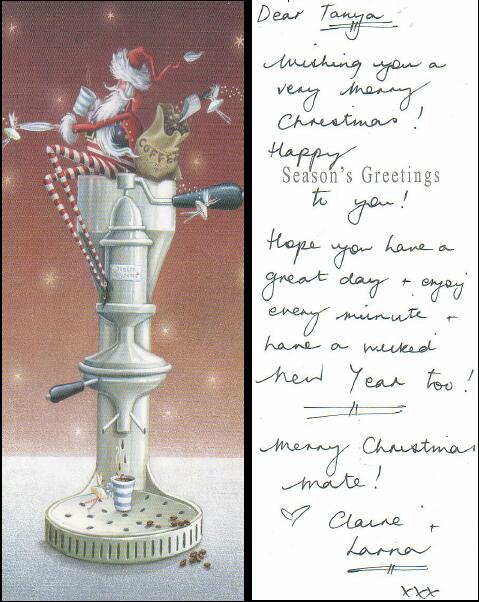 COFFEE
Dear Tanya
Wishing you a
very Merry
Christmas!
Happy
Season's Greetings
to you!
Hope you have a
great day + enjoy
every minute +
have a wicked
New Year too!
Merry Christmas
mate!
♡ Claire +
Lanna
xxx